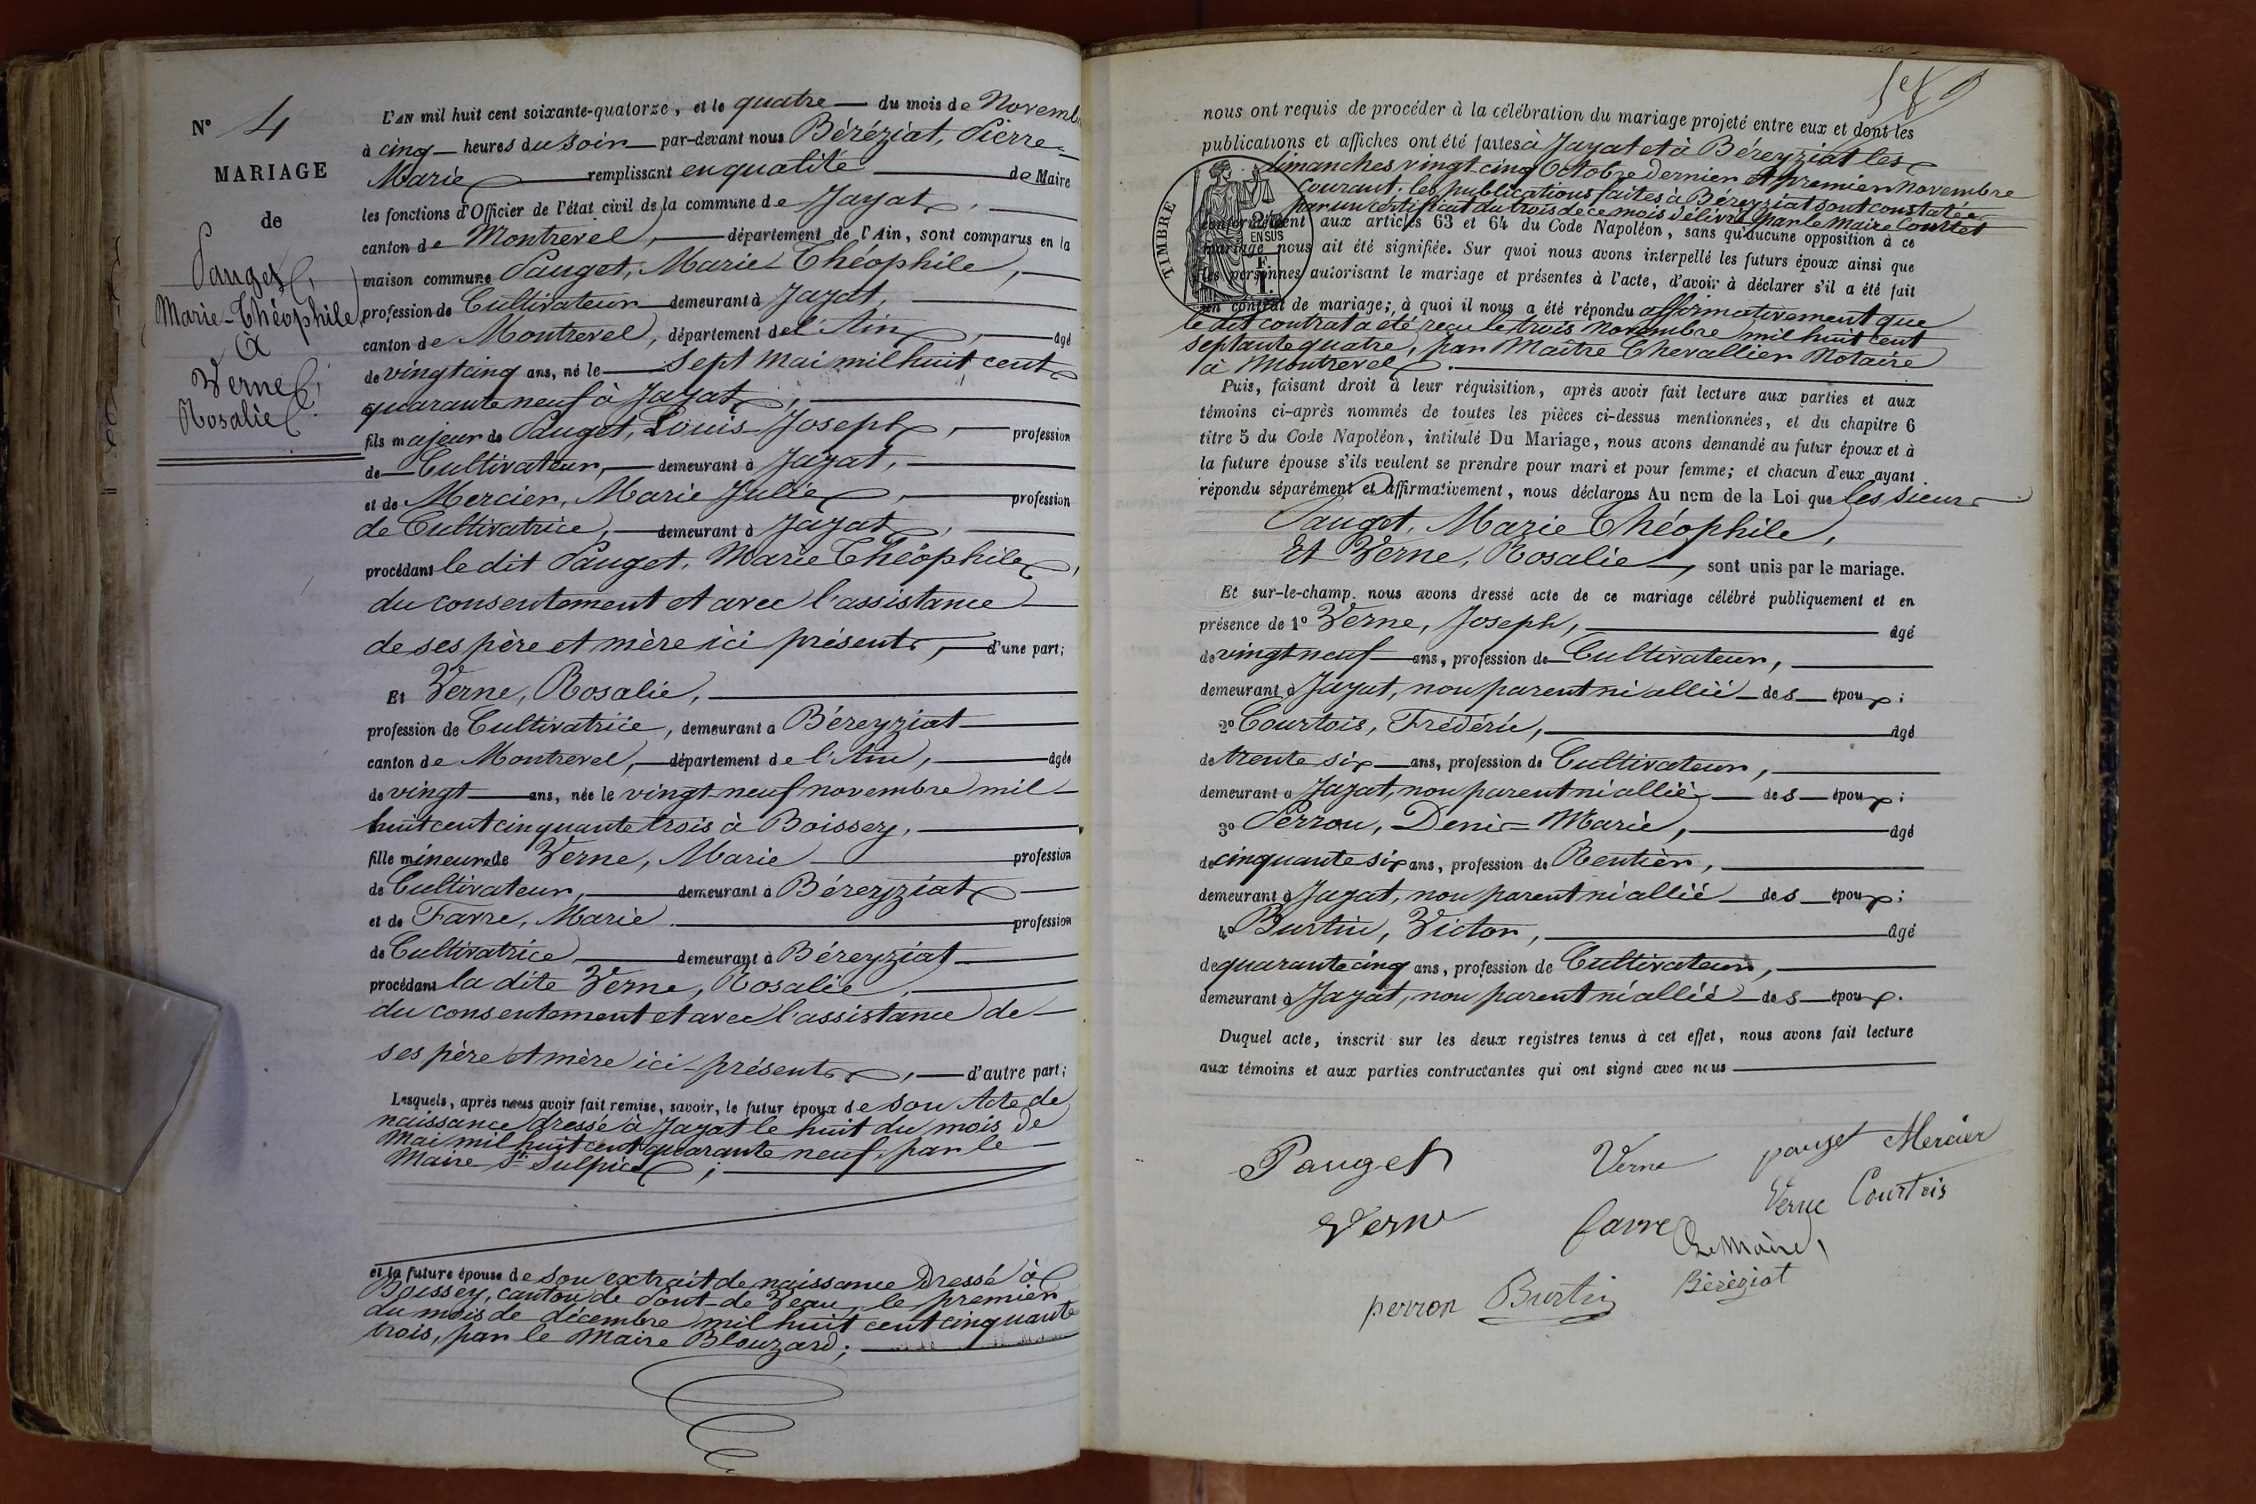 N° 4
MARIAGE
de
Pauget,
Marie-Théophile,
&
Verne,
Rosalie.
L'AN mil huit cent soixante-quatorze, et le quatre du mois de Novemb
à cinq heures du soir par-devant nous Béréziat, Pierre-
Marie remplissant en qualité de Maire
les fonctions d'Officier de l'état civil de la commune de Jayat,
canton de Montrevel, département de l'Ain, sont comparus en la
maison commune Pauget, Marie-Théophile,
profession de Cultivateur demeurant à Jayat,
canton de Montrevel, département de l'Ain, âgé
de vingt cinq ans, né le sept mai mil huit cent
quarante neuf à Jayat,
fils majeur de Pauget, Louis-Joseph, profession
de Cultivateur, demeurant à Jayat,
et de Mercier, Marie Julie, profession
de Cultivatrice, demeurant à Jayat,
procédant le dit Pauget, Marie Théophile,
du consentement et avec l'assistance
de ses père et mère ici présents, d'une part;
Et Verne, Rosalie,
profession de Cultivatrice, demeurant à Béreyziat
canton de Montrevel, département de l'Ain, âgée
de vingt ans, née le vingt-neuf novembre mil
huit cent cinquante trois à Boissey,
fille mineure de Verne, Marie profession
de Cultivateur, demeurant à Béreyziat
et de Favre, Marie profession
de Cultivatrice demeurant à Béreyziat
procédant la dite Verne, Rosalie,
du consentement et avec l'assistance de
ses père et mère ici présents, d'autre part;
Lesquels, après nous avoir fait remise, savoir, le futur époux de son Acte de
naissance dressé à Jayat le huit du mois de
Mai mil huit cent quarante neuf, par le
Maire St Sulpice;
et la future épouse de son extrait de naissance dressé à
Boissey, canton de Pont-de-Veau, le premier
du mois de décembre mil huit cent cinquante
trois, par le Maire Blouzard;
nous ont requis de procéder à la célébration du mariage projeté entre eux et dont les
publications et affiches ont été faites à Jayat et à Béreyziat les
dimanches vingt cinq Octobre dernier et premier novembre
courant; les publications faites à Béreyziat sont constatées
par un certificat du trois de ce mois délivré par le Maire Courtet
TIMBRE
EN SUS
conformément aux articles 63 et 64 du Code Napoléon, sans qu'aucune opposition à ce
mariage nous ait été signifiée. Sur quoi nous avons interpellé les futurs époux ainsi que
les personnes autorisant le mariage et présentes à l'acte, d'avoir à déclarer s'il a été fait
un contrat de mariage; à quoi il nous a été répondu affirmativement que
le dit contrat a été reçu le trois Novembre mil huit cent
septante quatre, par Maître Chevallier Notaire
à Montrevel.
Puis, faisant droit à leur réquisition, après avoir fait lecture aux parties et aux
témoins ci-après nommés de toutes les pièces ci-dessus mentionnées, et du chapitre 6
titre 5 du Code Napoléon, intitulé Du Mariage, nous avons demandé au futur époux et à
la future épouse s'ils veulent se prendre pour mari et pour femme; et chacun d'eux ayant
répondu séparément et affirmativement, nous déclarons Au nom de la Loi que les sieur
Pauget, Marie Théophile,
Et Verne, Rosalie, sont unis par le mariage.
Et sur-le-champ, nous avons dressé acte de ce mariage célébré publiquement et en
présence de 1° Verne, Joseph, âgé
de vingt neuf ans, profession de Cultivateur,
demeurant à Jayat, non parent ni allié des époux;
2° Courtois, Frédéric, âgé
de trente six ans, profession de Cultivateur,
demeurant à Jayat, non parent ni allié des époux;
3° Perron, Denis-Marie, âgé
de cinquante six ans, profession de Rentier,
demeurant à Jayat, non parent ni allié des époux;
4° Burtin, Victor, âgé
de quarante cinq ans, profession de Cultivateur,
demeurant à Jayat, non parent ni allié des époux.
Duquel acte, inscrit sur les deux registres tenus à cet effet, nous avons fait lecture
aux témoins et aux parties contractantes qui ont signé avec nous
Pauget Verne pauget Mercier
Verne favre Verne Courtois
Le Maire,
perron Burtin Béréziat